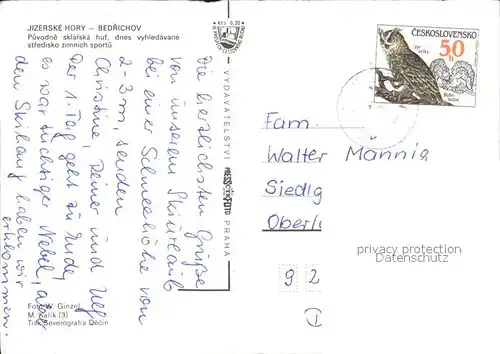 JIZERSKÉ HORY – BEDŘICHOV
Původně sklářská huť, dnes vyhledávané
středisko zimních sportů
Die herzlichsten Grüße
von unserem Skiurlaub
bei einer Schneehöhe von
2-3m, senden
Christine, Reiner und Ulf
Der 1. Tag geht zu Ende,
es war tüchtiger Nebel, aber
den Skihang haben wir
erklommen.
Foto W. Ginzel
M. Kalík (3)
Tisk Severografia Děčín
Kčs 0,20
VYDAVATELSTVÍ PRESSFOTO PRAHA
ČESKOSLOVENSKO
50
h
Výr velký
Bubo bubo
Fam.
Walter Männig
Siedl
Oberl
privacy protection
Datenschutz
9 2